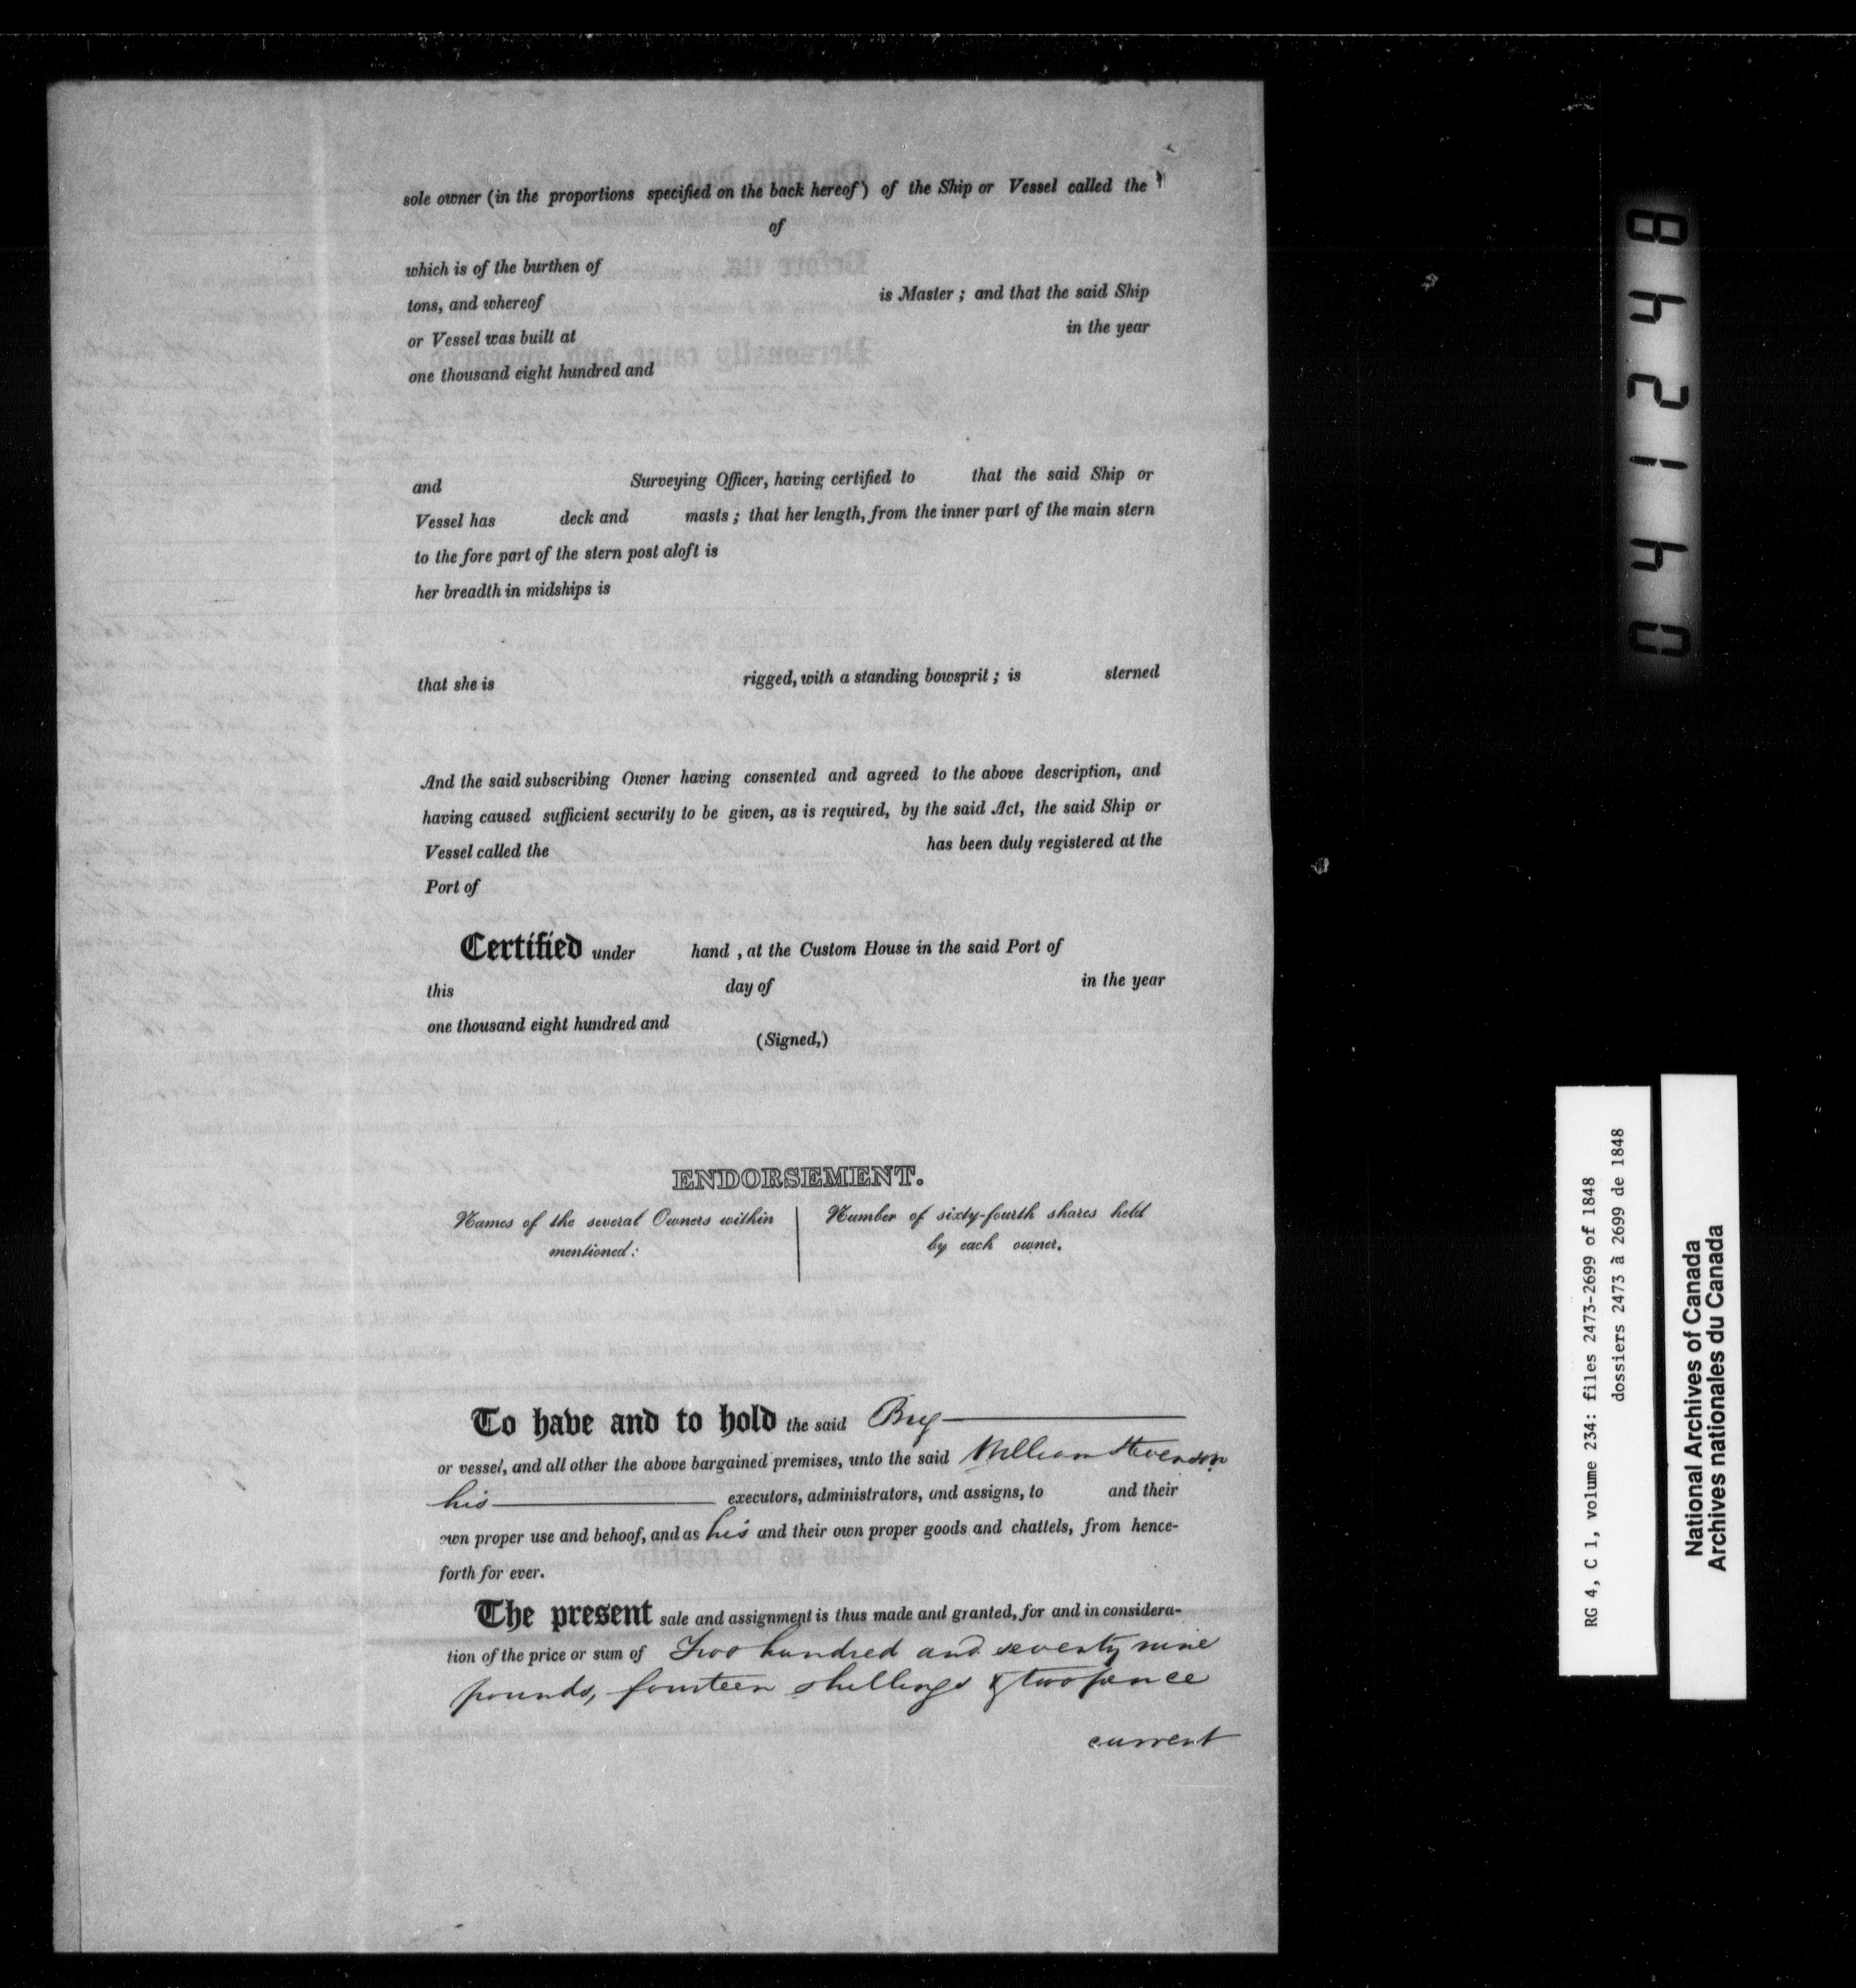 sole owner (in the proportions specified on the back hereof) of the Ship or Vessel called the
of
which is of the burthen of
tons, and whereof is Master ; and that the said Ship
or Vessel was built at in the year
one thousand eight hundred and
and Surveying Officer, having certified to that the said Ship or
Vessel has deck and masts ; that her length, from the inner part of the main stern
to the fore part of the stern post aloft is
her breadth in midships is
that she is rigged, with a standing bowsprit ; is sterned
And the said subscribing Owner having consented and agreed to the above description, and
having caused sufficient security to be given, as is required, by the said Act, the said Ship or
Vessel called the has been duly registered at the
Port of
Certified under hand , at the Custom House in the said Port of
this day of in the year
one thousand eight hundred and
(Signed,)
ENDORSEMENT.
Names of the several Owners within
mentioned:
Number of sixty-fourth shares held
by each owner.
To have and to hold the said Brig
or vessel, and all other the above bargained premises, unto the said William Stevenson
his executors, administrators, and assigns, to and their
own proper use and behoof, and as his and their own proper goods and chattels, from hence-
forth for ever.
The present sale and assignment is thus made and granted, for and in considera-
tion of the price or sum of Two hundred and seventy nine
pounds, fourteen shillings & two pence
current
042148
RG 4, C 1, volume 234: files 2473-2699 of 1848
dossiers 2473 à 2699 de 1848
National Archives of Canada
Archives nationales du Canada